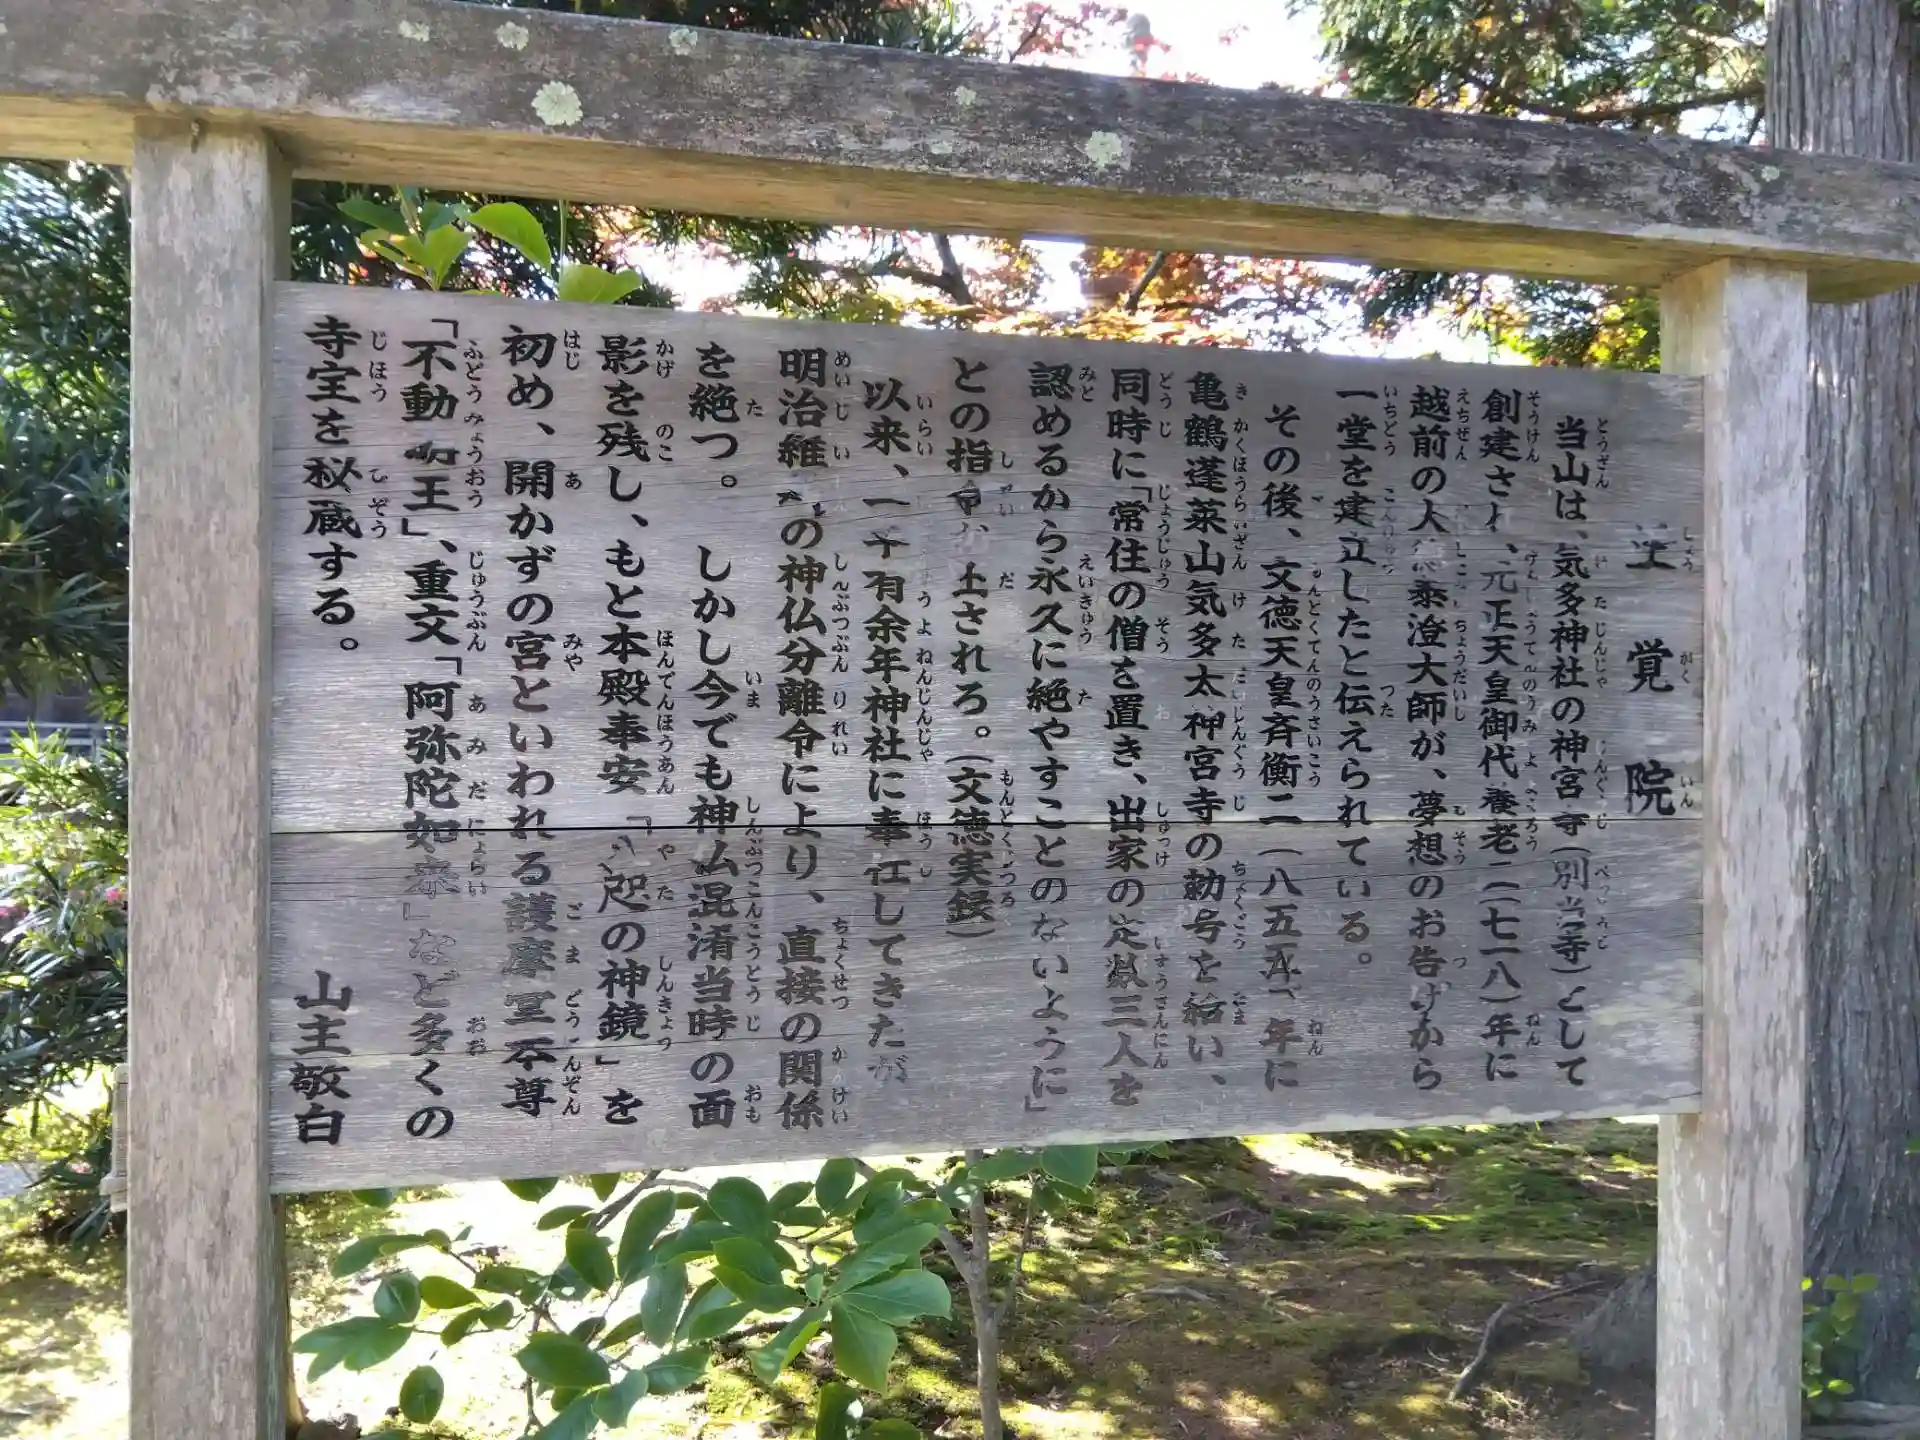 正覚院
当山は、気多神社の神宮寺(別当寺)として
創建され、元正天皇御代養老二(七一八)年に
越前の大德泰澄大師が、夢想のお告げから
一堂を建立したと伝えられている。
その後、文徳天皇斉衡二(八五五)年に
亀鶴蓬莱山気多太神宮寺の勅号を給い、
同時に「常住の僧を置き、出家の定数三人を
認めるから永久に絶やすことのないように」
との指令が下される。(文徳実録)
以来、一千有余年神社に奉仕してきたが
明治維新の神仏分離令により、直接の関係
を絶つ。 しかし今でも神仏混淆当時の面
影を残し、もと本殿奉安「八咫の神鏡」を
初め、開かずの宮といわれる護摩堂本尊
「不動明王」、重文「阿弥陀如来」など多くの
寺宝を秘蔵する。
山主敬白